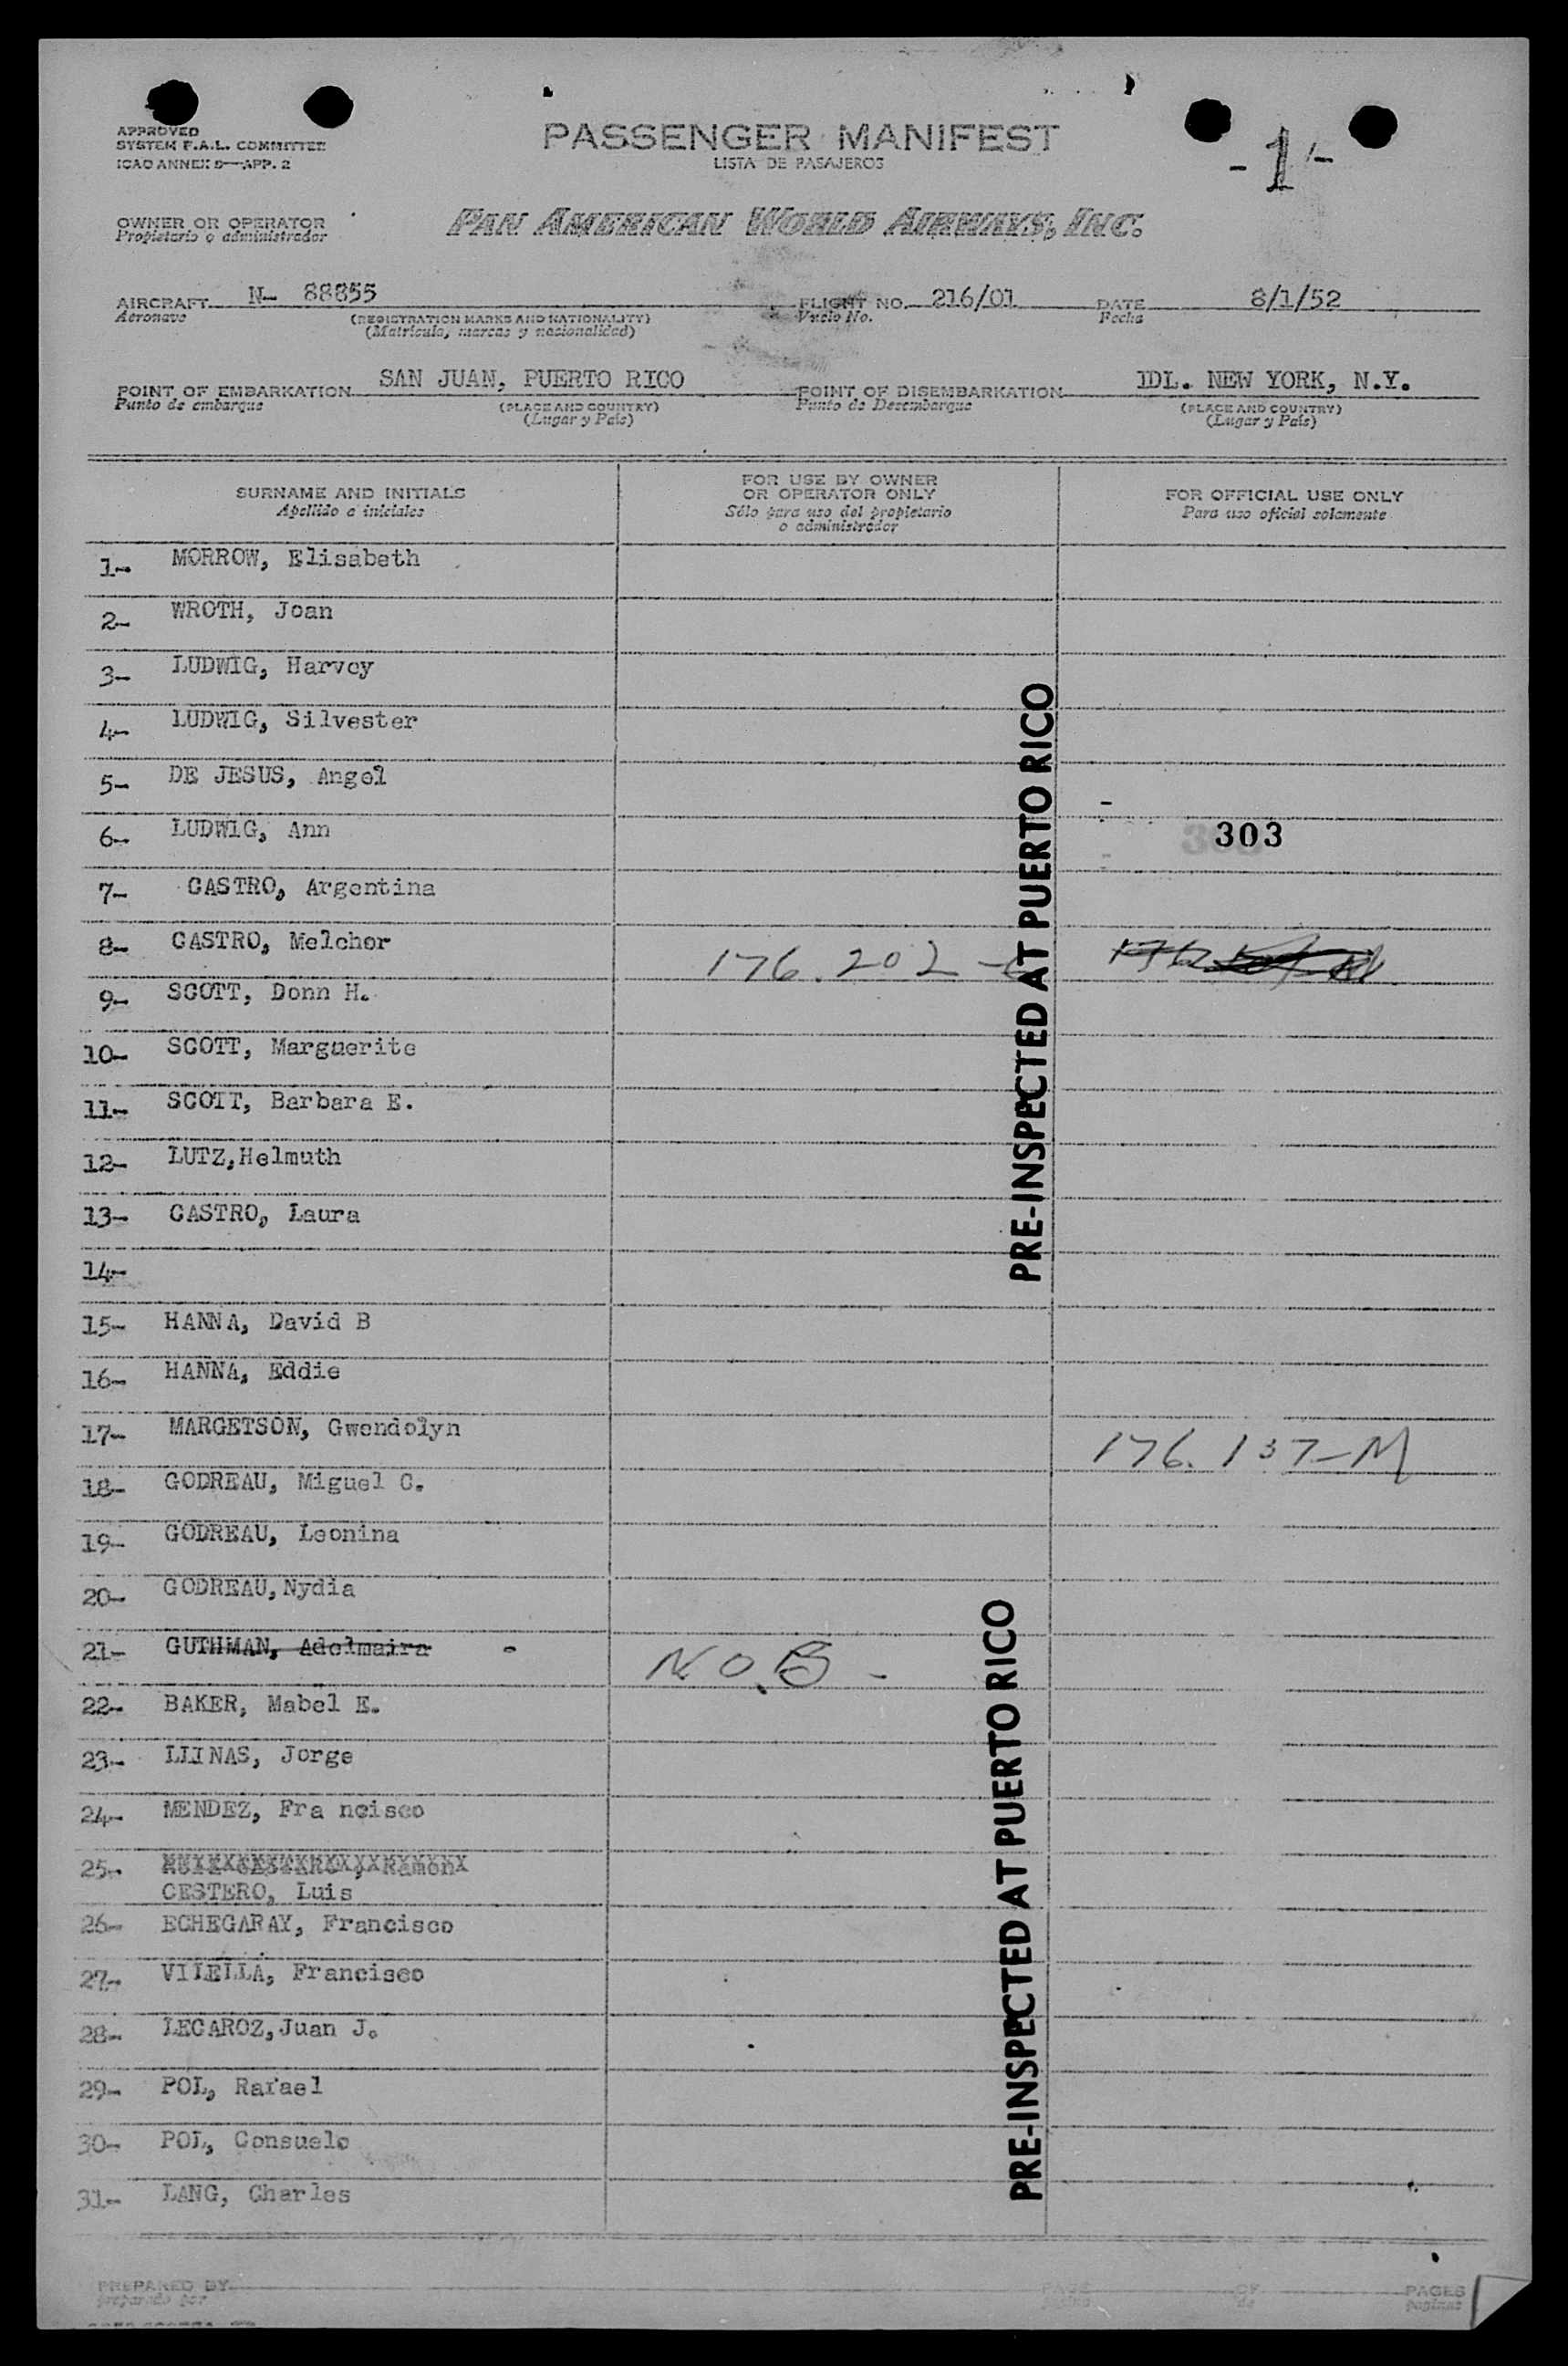 APPROVED
SYSTEM F.A.L. COMMITTEE
ICAO ANNEX 9—APP. 2
PASSENGER MANIFEST
LISTA DE PASAJEROS
-1-
OWNER OR OPERATOR
Propietario o administrador
PAN AMERICAN WORLD AIRWAYS, INC.
AIRCRAFT N- 88855 FLIGHT NO. 216/01 DATE 8/1/52
Aeronave (REGISTRATION MARKS AND NATIONALITY) Vuelo No. Fecha
(Matricula, marcas y nacionalidad)
POINT OF EMBARKATION SAN JUAN, PUERTO RICO POINT OF DISEMBARKATION IDL. NEW YORK, N.Y.
Punto de embarque (PLACE AND COUNTRY) Punto de Desembarque (PLACE AND COUNTRY)
(Lugar y País) (Lugar y País)
SURNAME AND INITIALS
Apellido e iniciales
FOR USE BY OWNER
OR OPERATOR ONLY
Sólo para uso del propietario
o administrador
FOR OFFICIAL USE ONLY
Para uso oficial solamente
1- MORROW, Elisabeth
2- WROTH, Joan
3- LUDWIG, Harvey
4- LUDWIG, Silvester
5- DE JESUS, Angel
6- LUDWIG, Ann 303
7- CASTRO, Argentina
8- CASTRO, Melchor 176.202
9- SCOTT, Donn H.
10- SCOTT, Marguerite
11- SCOTT, Barbara E.
12- LUTZ,Helmuth
13- CASTRO, Laura
14-
15- HANNA, David B
16- HANNA, Eddie
17- MARGETSON, Gwendolyn 176.137-M
18- GODREAU, Miguel C.
19- GODREAU, Leonina
20- GODREAU,Nydia
21- GUTHMAN, Adelmaira - N.O.B-
22- BAKER, Mabel E.
23- LLINAS, Jorge
24- MENDEZ, Fra ncisco
25- Ramon
CESTERO, Luis
26- ECHEGARAY, Francisco
27- VILELLA, Francisco
28- LECAROZ,Juan J.
29- POL, Rafael
30- POL, Consuelo
31- LANG, Charles
PRE-INSPECTED AT PUERTO RICO
PRE-INSPECTED AT PUERTO RICO
PREPARED BY PAGE OF PAGES
preparado por página de paginas